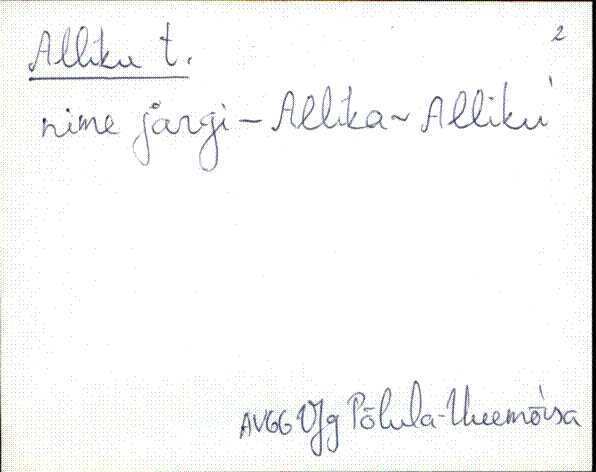 2
Alliku t.
nime järgi – Allika ~ Alliku
AVGG VJg Põlula-Uuemõisa